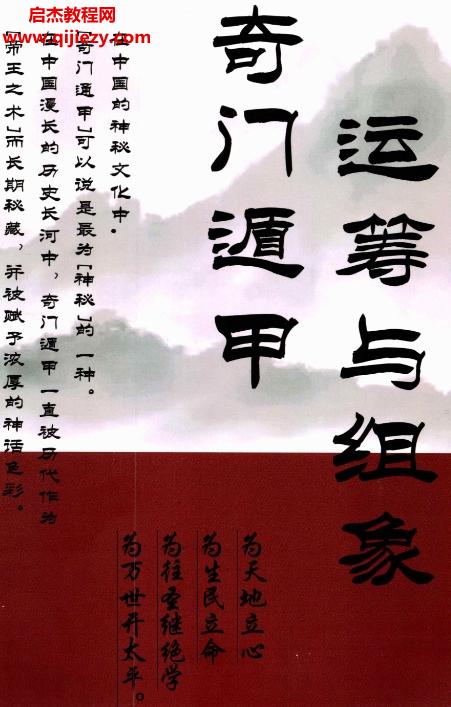 启杰教育网
www.qijiezy.com
奇门遁甲
运筹与组象
在中国的神秘文化中，
「奇门遁甲」可以说是最为「神秘」的一种。
在中国漫长的历史长河中，奇门遁甲一直被历代作为
「帝王之术」而长期秘藏，并被赋予浓厚的神话色彩。
为天地立心
为生民立命
为往圣继绝学
为万世开太平。